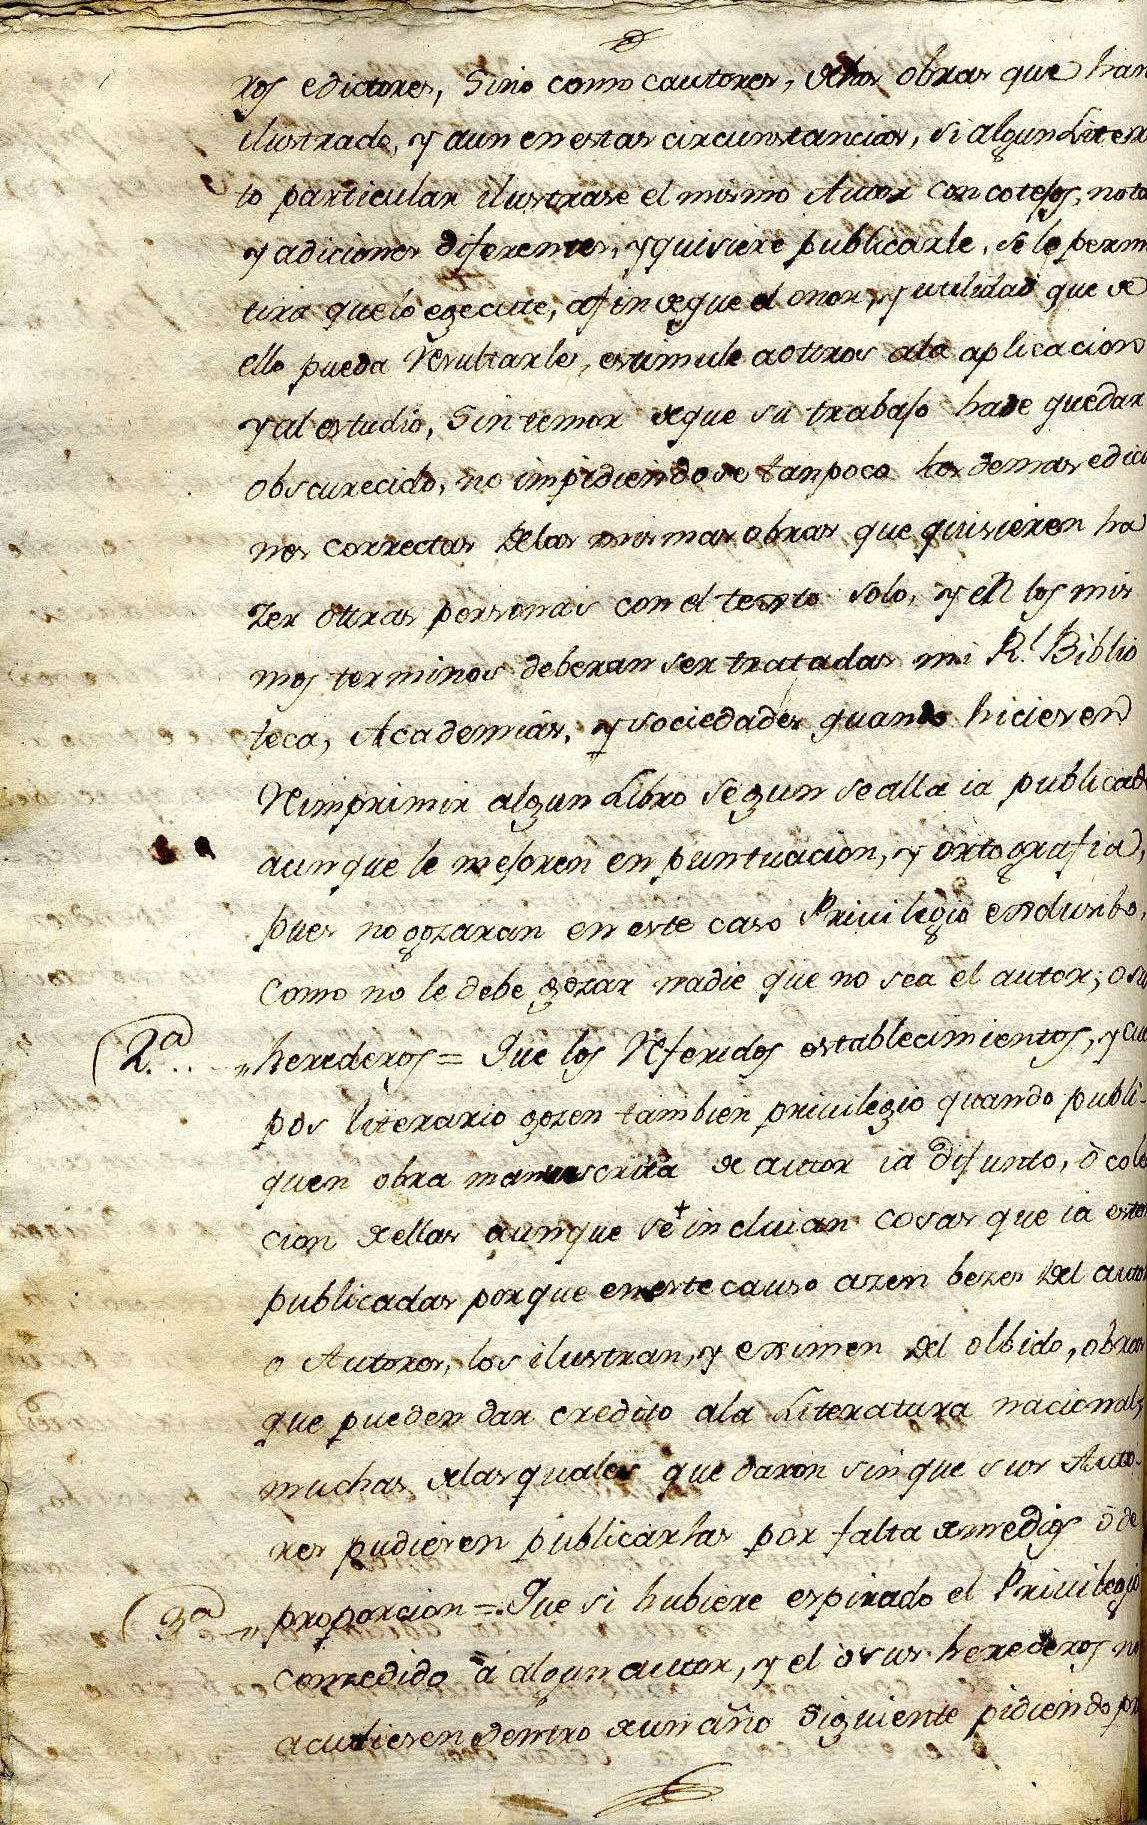 ros edictores, Sino como cautores, dhas obras que han
ilustrado, y aun en estas circunstancias, si algun Litera
to particular ilustrase el mismo Autor con cotejos, notas
y adiciones diferentes, y quisiere publicarle, se le permi
tira que lo egecute, afin de que el onor, y utilidad que de
ello pueda Resultarles, estimule a ottros ala aplicacion
y al estudio, Sin temor de que su trabajo hade quedar
obscurecido, no impidiendose tanpoco las demas edicio
nes correctas de las mismas obras que quisieren ha
zer ottras personas con el testo solo, y en los mis
mos terminos deberan ser tratadas mi Rl. Biblio
teca, Academias, y Sociedades quando hicieren
Reimprimir algun Libro segun se alla ia publicado
aunque le mejoren en puntuacion, y ortografia,
pues no gozaran en este caso Privilegio exclusibo,
como no le debe gozar nadie que no sea el autor; o sus
(2.a .. „ herederos = Que los Referidos establecimientos, y cuer
pos literario gozen tambien privilegio quando publi-
quen obra manuscrita de autor ia difunto, ò cole
cion dellas aunque se + incluian cosas que ia esten
publicadas porque en este causo azen bezes del autor
o Autores, los ilustran, y eximen del olbido, obras
que pueden dar credito ala Literatura nacional, y
muchas delas quales quedaron sin que sus Auto-
res pudiesen publicarlas por falta de medios ò de
(3a „ proporcion =. Que si hubiere espirado el Privilegio
conzedido à algun autor, y el òsus herederos no
acudiesen dentro de un año siguiente pidiendo pro